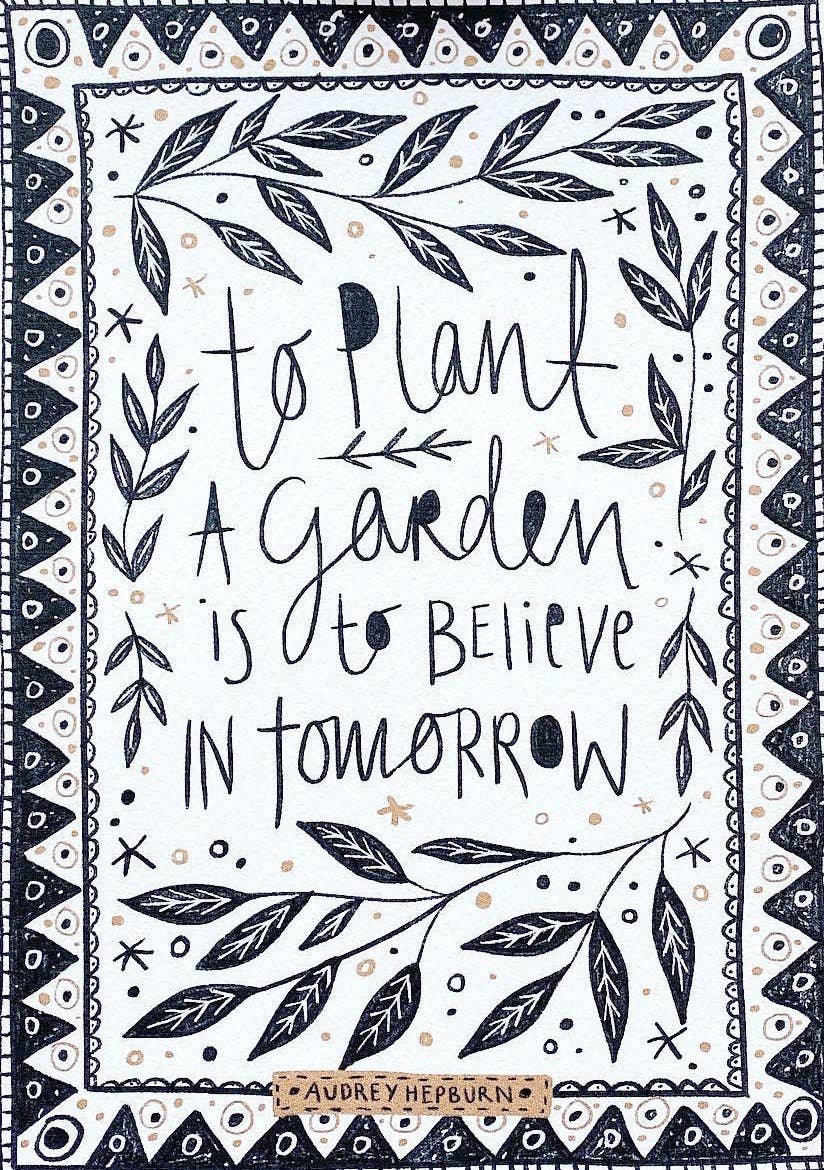 to Plant
A Garden
is to BElieve
IN tomoRROW
AUDREY HEPBURN